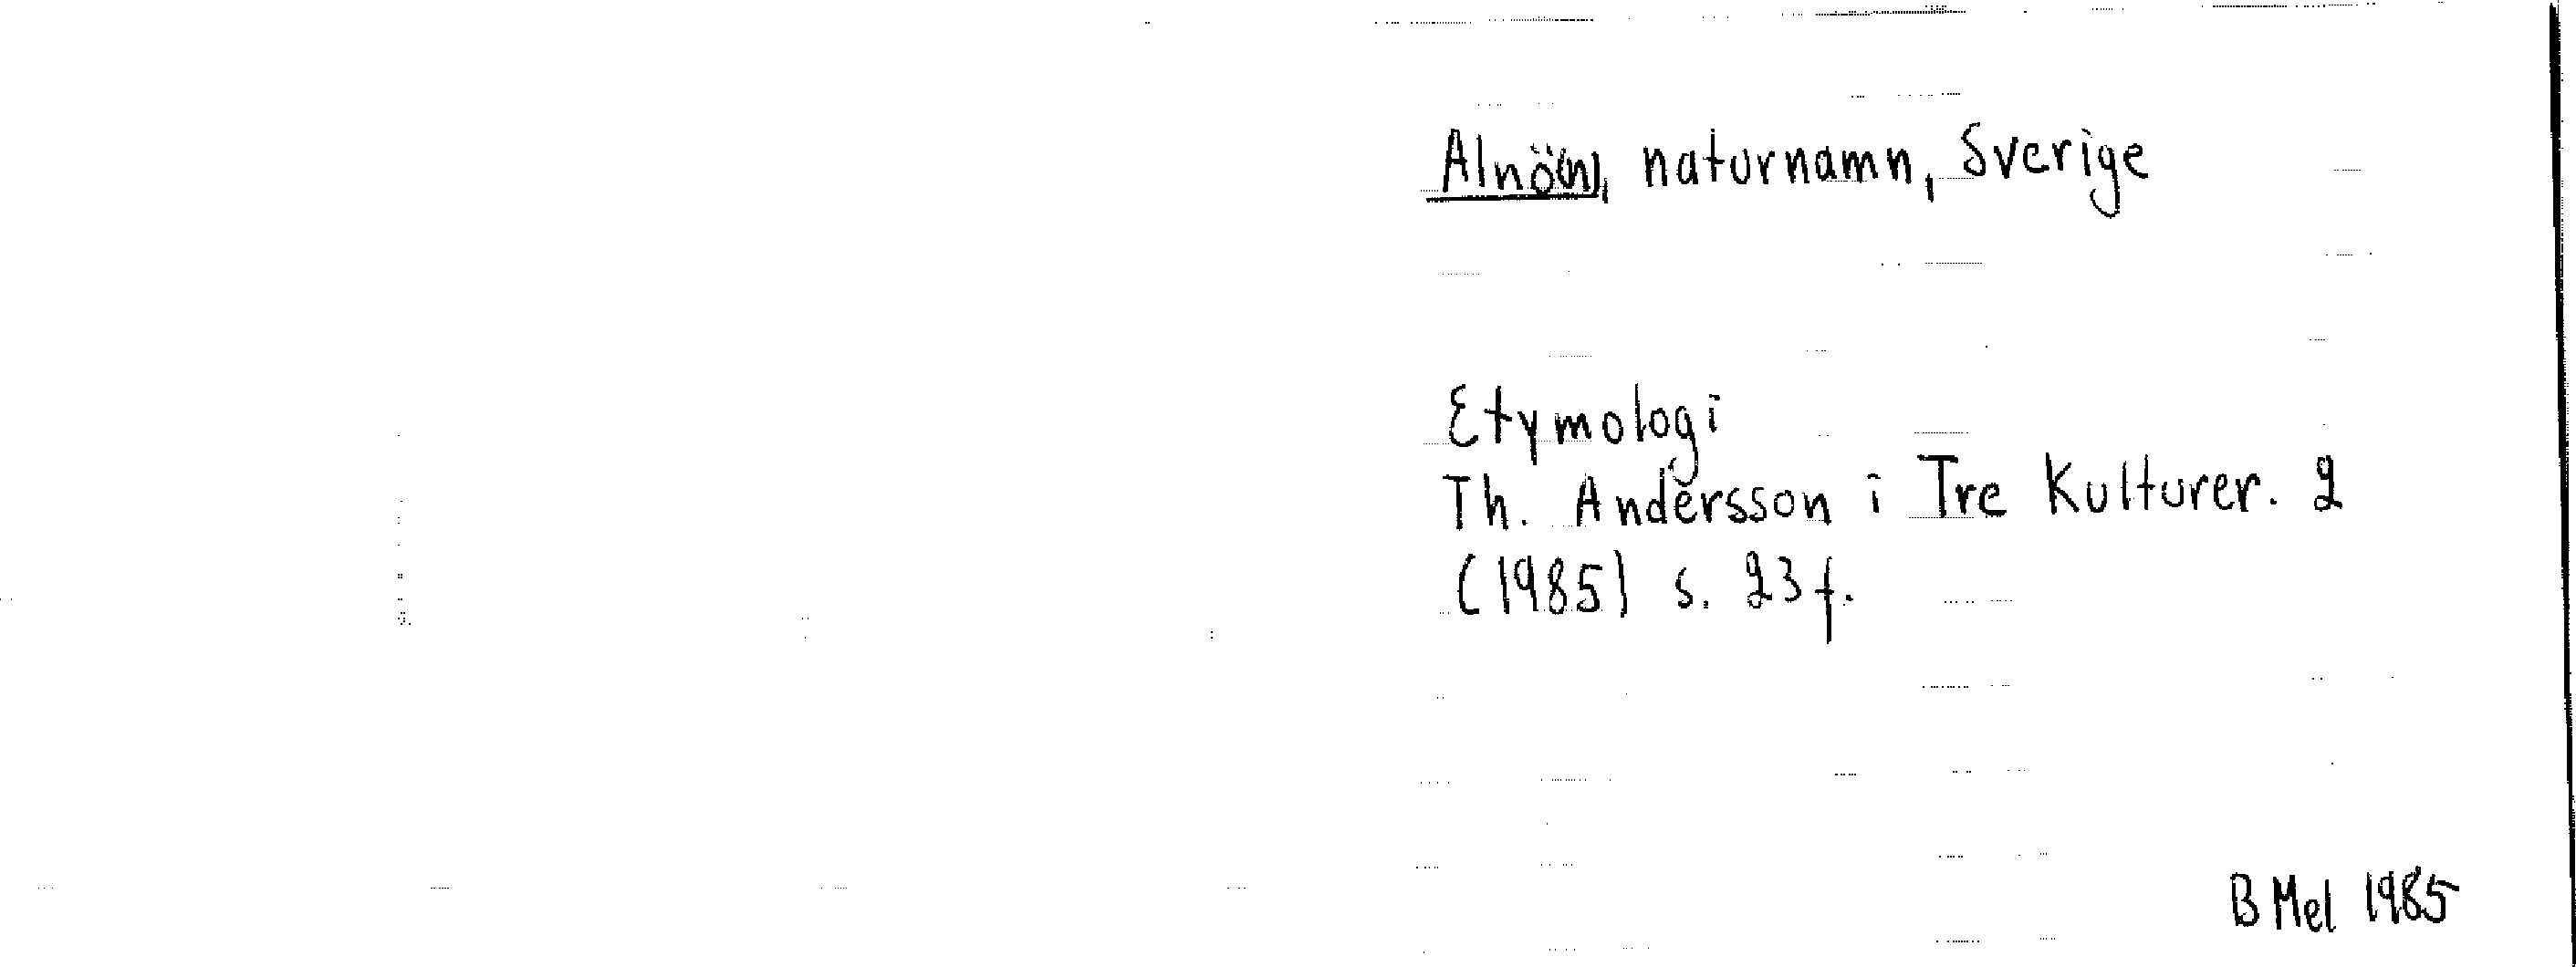 Alnö(n), naturnamn, Sverige
Etymologi
Th. Andersson i Tre Kulturer. 2
(1985) s. 23 f.
B Mel 1985